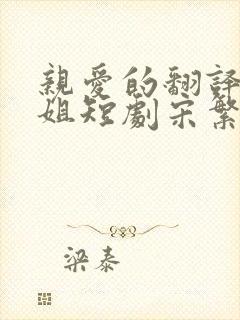 親愛的翻譯
姐短劇宋繁
梁泰